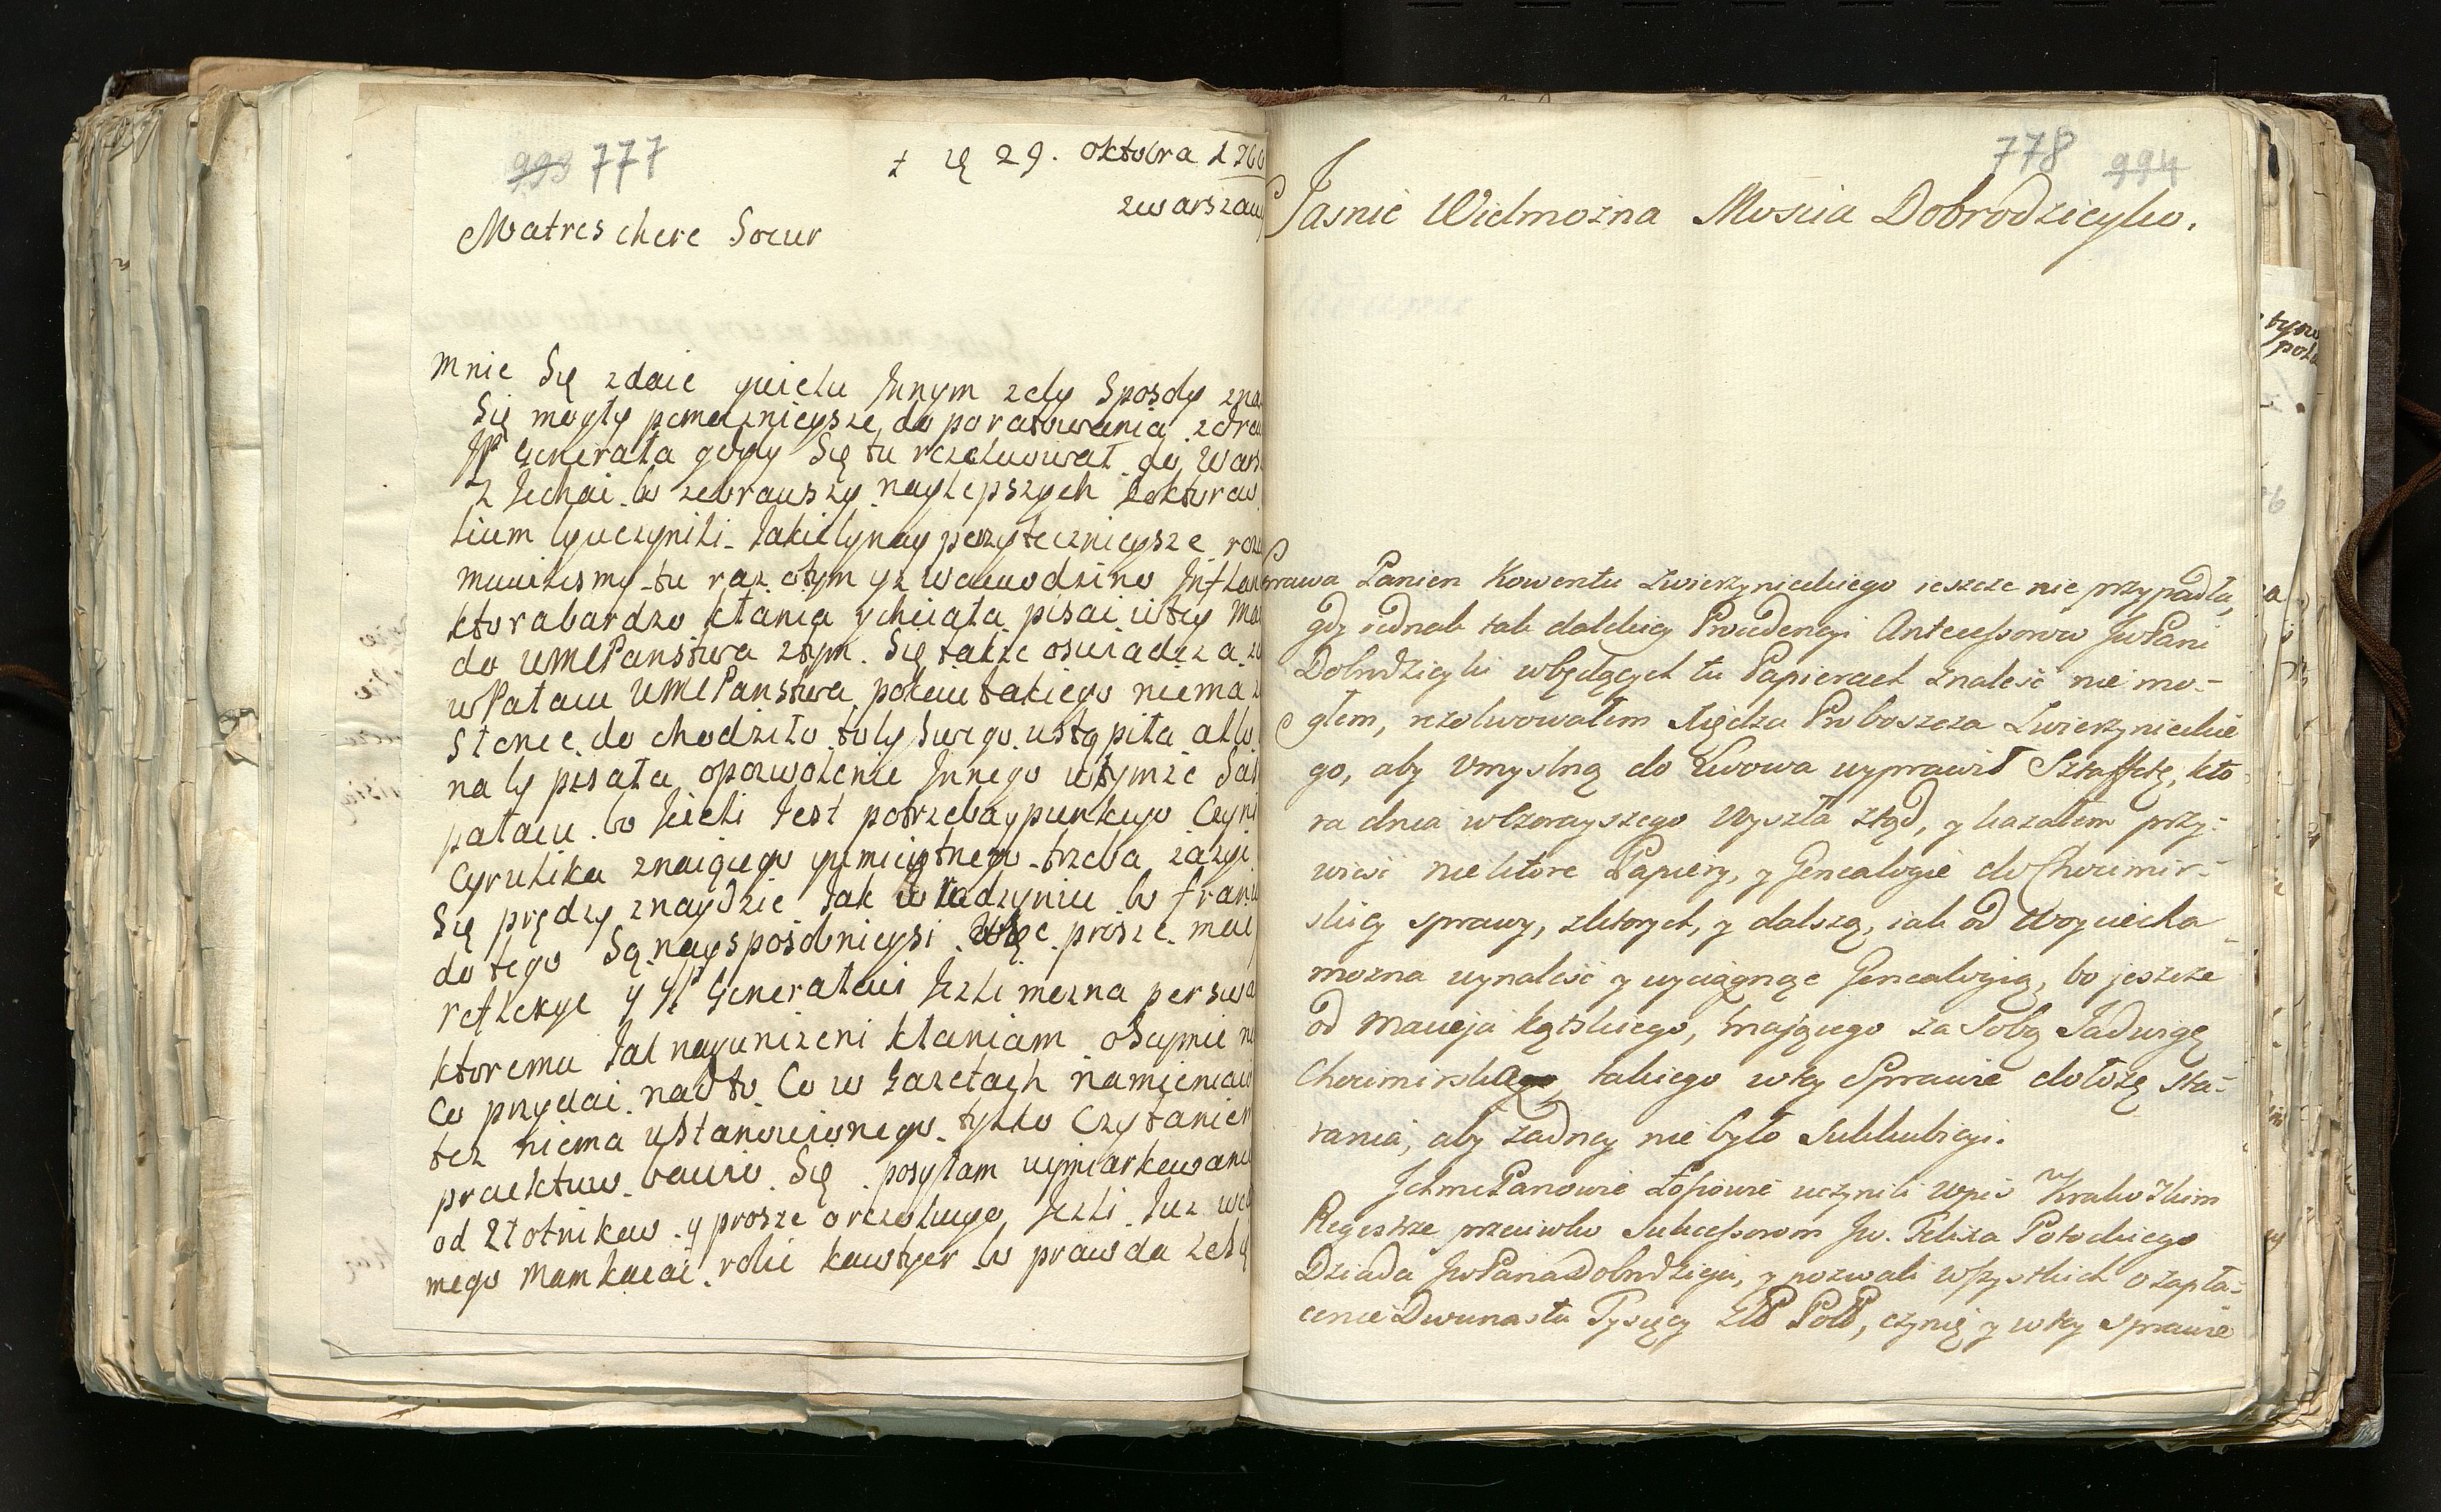 993 777
ę 29. oktobra 176
zwarszaw
Matres chere Soeur
Mnie Się zdaie ywielu Jnnym zeby Sposoby zna
Się mogły pomocznieysze do poratowania zdro
JP Generała gdyby Się tu rezoluował do Wars
ziechai bo zebrauszy naylepszych Doktorow
lium byuczynili Jakieby nay pozyteczniejsze roz
muwilismy tu raz otym yz Wojewodzino Jnflan
ktora bardzo kłania ychciała pisai utey
do UMPanstwa ztym Się także osuiadcza
wPałacu UMPanstwa pokoiu takiego niema
Stanie do chodziło toby Swego ustąpiła albo
na by pisała opozwolenie Jnnego wtymże
pałacu bo Jeieli Jest potrzeba
Cyrulika znaiącego yumieiętnego trzeba zazyi
Się prędzy znaydzie Jak w bo
do tego Są naysposobnieysi prosze
reflexye y JP Generałowi Jezli mozna perswa
ktoremu Jak nayunizeni kłaniam osupnie
Co przydai nadto Co w Gazetach namieniaio
tez niema ustanowionego tylko Czytaniem
proiektow bawio Się posyłam wymiarkowanie
od Złotnikow y prosze orezolucye Jezli Juz
mego Mam kazai robic kawtyer bo prawda zeby
778 994
Jasnie Wielmożna Mościa Dobrodzieyko.
Sprawa Panien Konwentu Zwierzynieckiego ieszcze nie przypadła,
gdy iednak tak dalekiey Prowidencyi Antecessorow JwPani
Dobrodzieyki wbędących tu Papierach znaleść nie mo-
głem, rezolwowałem Xiędza Proboszcza Zwierzynieckie
go, aby Vmyslną do Lwowa wyprawił Sztaffetę, kto
ra dnia wczorayszego Wyszła ztąd, y kazałem przy-
wieść niektore Papiery, y Genealogie do Choimir-
skiey sprawy, zktorych, y dalszą, iak od Woyciecha
mozna wynaleść y wyciągnąc Genealogią, bo jeszcze
od Macieja Kątskiego, mającego za Sobą Jadwigę
Choimirską, takiego wtey Sprawie dołożę Sta-
rania, aby żadney nie było Subkubicyi.
JchmcPanowie Łosiowie uczynili Wpis w Krakowskim
Regestrze przeciwko Sukcessorom Jw. Felixa Potockiego
Dziada JwPana Dobrodzieja, y pozwali Wszystkich o zapła-
cenie Dwunastu Tysięcy Złł Poll, czynię y wtey sprawie